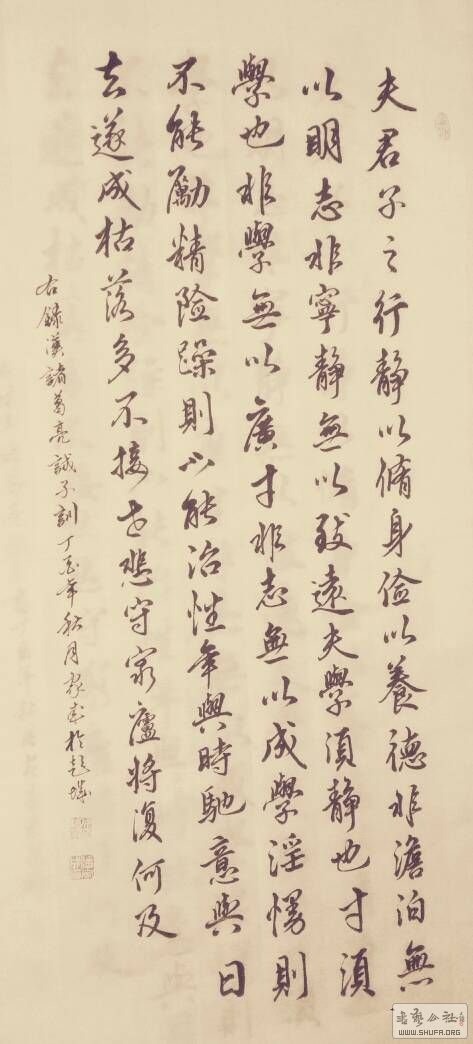 夫君子之行靜以脩身俭以養德非澹泊無
以明志非寧靜無以致遠夫學須靜也才須
學也非學無以廣才非志無以成學淫慢則
不能勵精險躁則不能治性年與時馳意與日
去遂成枯落多不接世悲守窮廬將復何及
右錄漢諸葛亮誡子訓丁酉年秋月
書藝公社
WWW.SHUFA.ORG